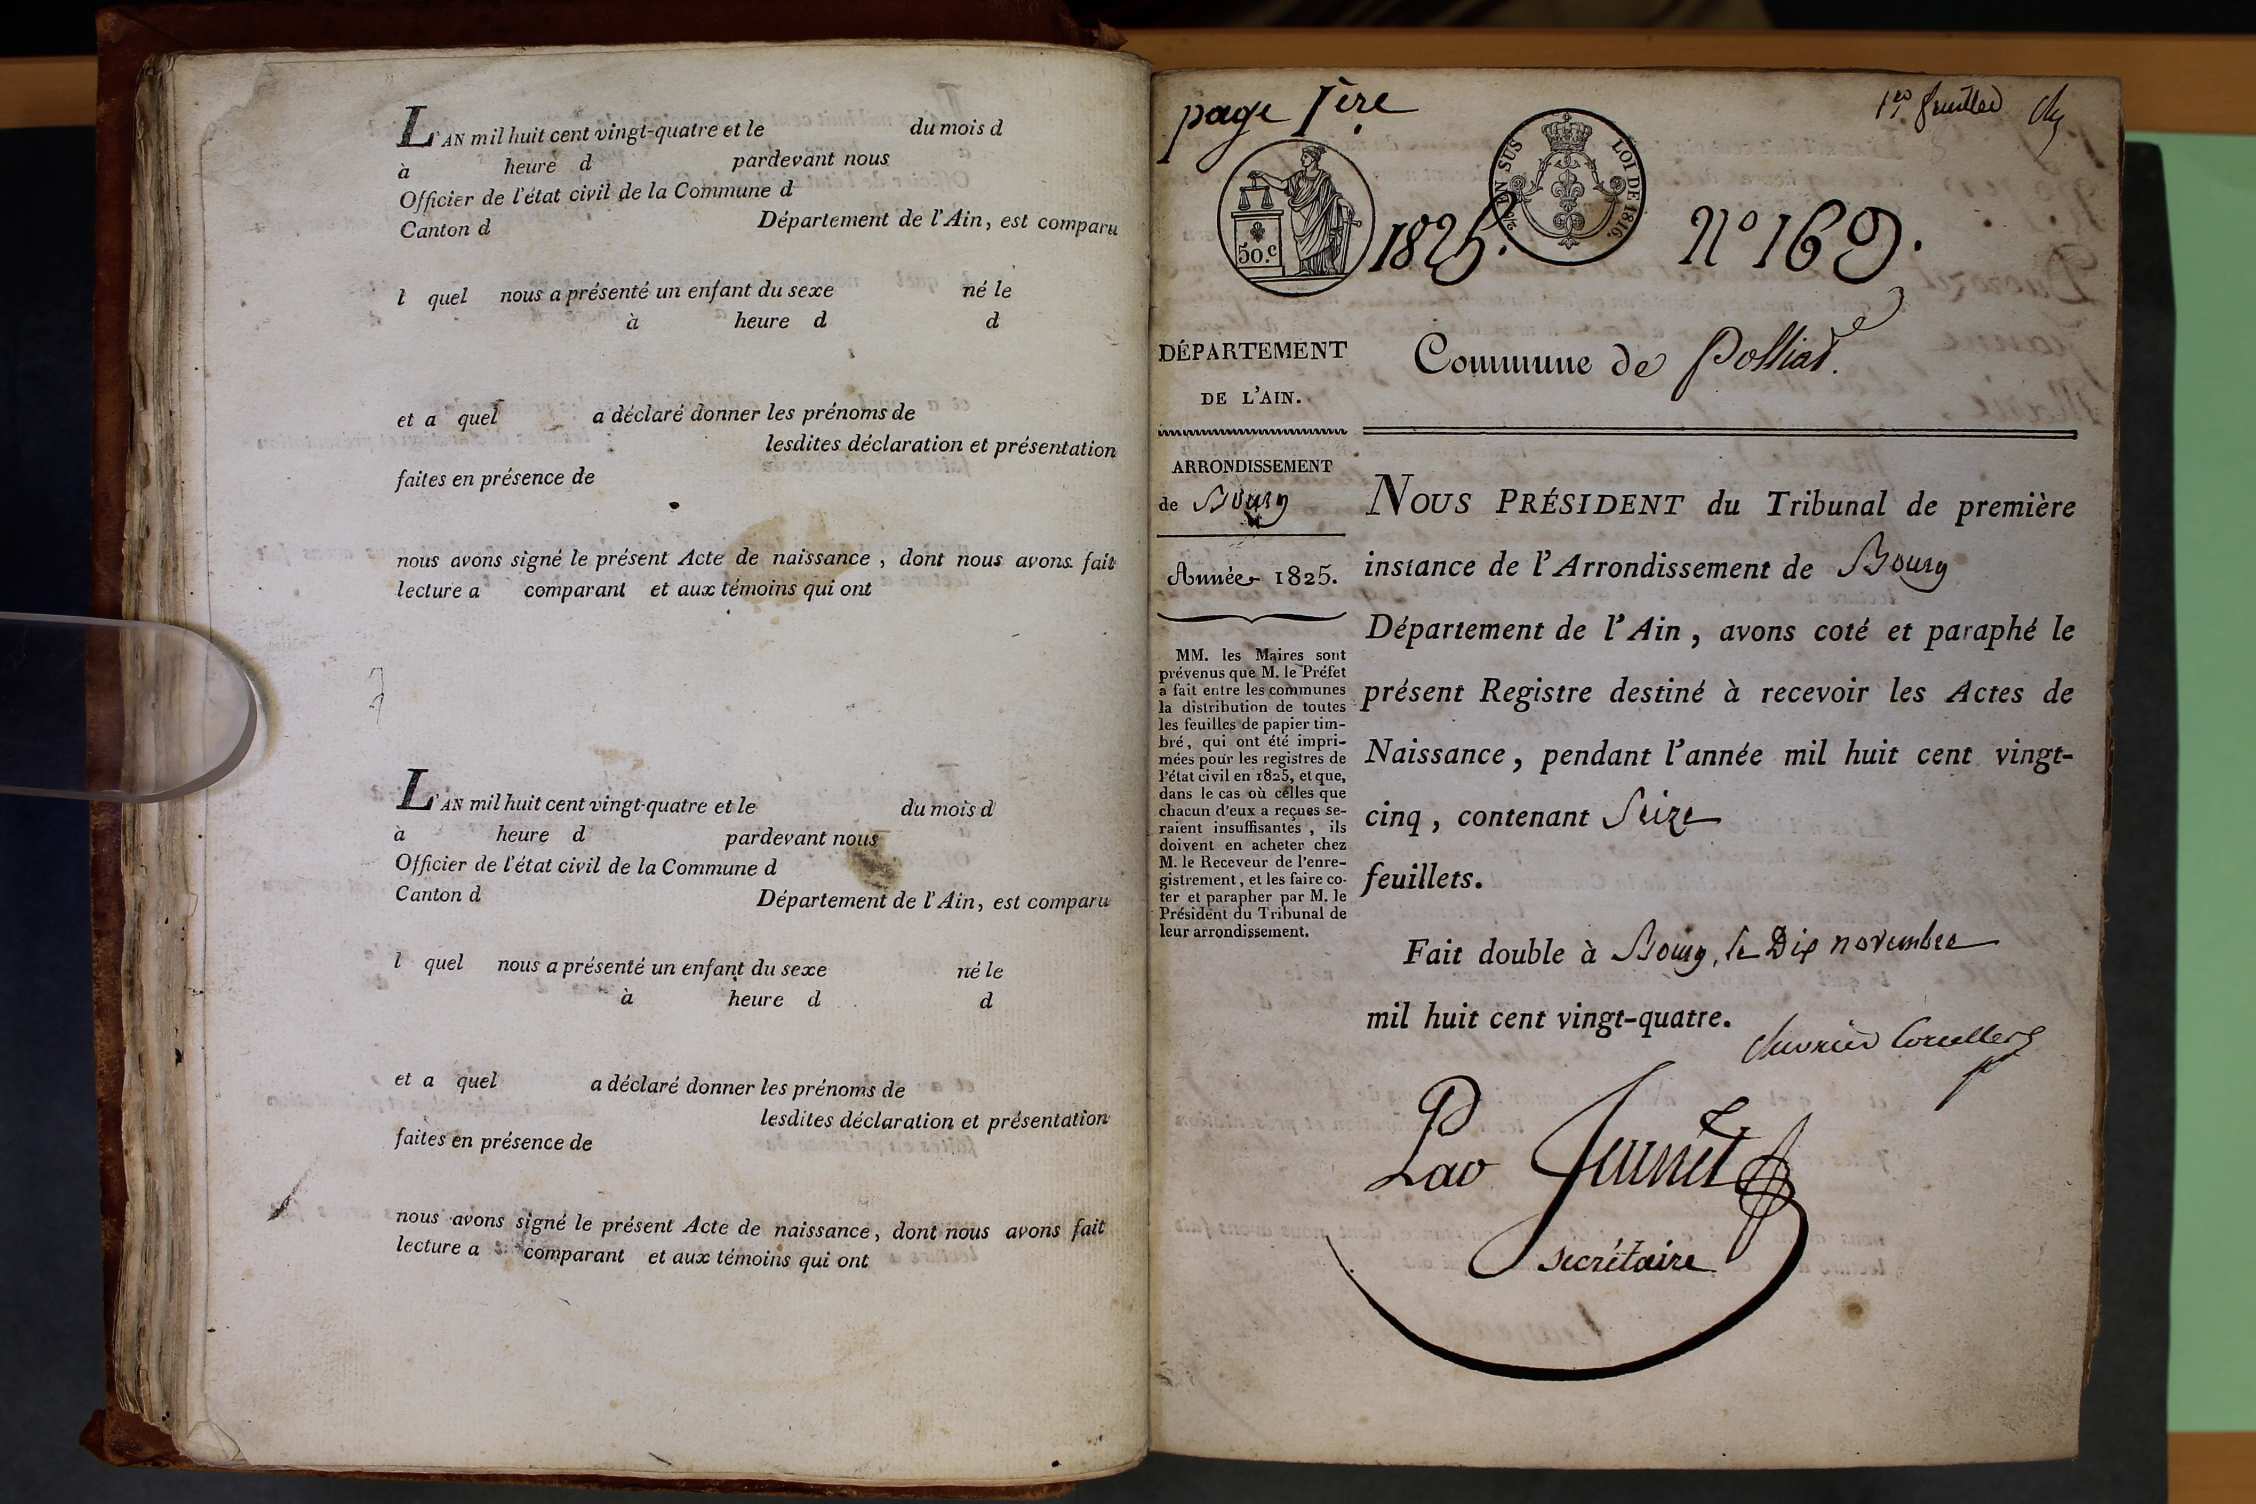 L'AN mil huit cent vingt-quatre et le du mois d
à heure d pardevant nous
Officier de l'état civil de la Commune d
Canton d Département de l'Ain, est comparu
l quel nous a présenté un enfant du sexe né le
à heure d d
et a quel a déclaré donner les prénoms de
lesdites déclaration et présentation
faites en présence de
nous avons signé le présent Acte de naissance, dont nous avons fait
lecture a comparant et aux témoins qui ont
L'AN mil huit cent vingt-quatre et le du mois d
à heure d pardevant nous
Officier de l'état civil de la Commune d
Canton d Département de l'Ain, est comparu
l quel nous a présenté un enfant du sexe né le
à heure d d
et a quel a déclaré donner les prénoms de
lesdites déclaration et présentation
faites en présence de
nous avons signé le présent Acte de naissance, dont nous avons fait
lecture a comparant et aux témoins qui ont
page 1ère
1er feuillet
50.c
SUS
LOI DE 1816.
1825. N° 169.
DÉPARTEMENT
DE L'AIN.
Commune de Polliat.
ARRONDISSEMENT
de Bourg
Année 1825.
MM. les Maires sont
prévenus que M. le Préfet
a fait entre les communes
la distribution de toutes
les feuilles de papier tim-
bré, qui ont été impri-
mées pour les registres de
l'état civil en 1825, et que,
dans le cas où celles que
chacun d'eux a reçues se-
raient insuffisantes, ils
doivent en acheter chez
M. le Receveur de l'enre-
gistrement, et les faire co-
ter et parapher par M. le
Président du Tribunal de
leur arrondissement.
NOUS PRÉSIDENT du Tribunal de première
instance de l'Arrondissement de Bourg
Département de l'Ain, avons coté et paraphé le
présent Registre destiné à recevoir les Actes de
Naissance, pendant l'année mil huit cent vingt-
cinq, contenant Seize
feuillets.
Fait double à Bourg, le Dix novembre
mil huit cent vingt-quatre.
secrétaire